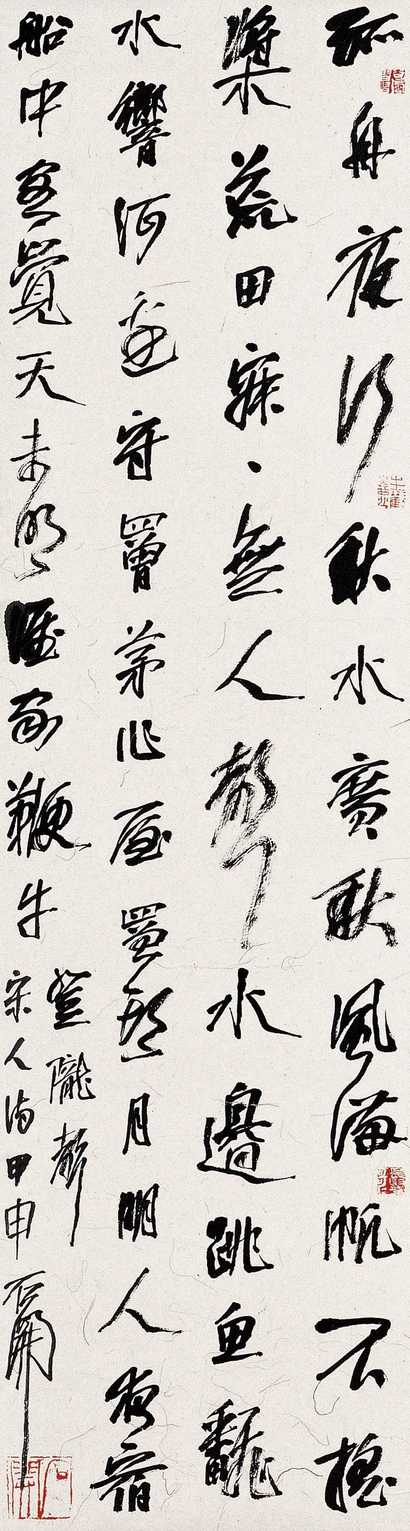 孤舟夜行秋水廣秋風滿帆不搖
槳荒田寂、無人聲水邊跳魚翻
水響河邊守罾茅作屋罾頭月明人夜宿
船中客覺天未明誰家鞭牛
登隴聲
宋人詩甲申石開
石開